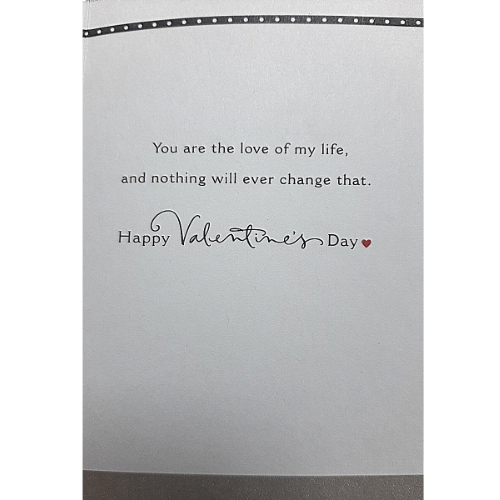 You are the love of my life,
and nothing will ever change that.
Happy Valentine's Day